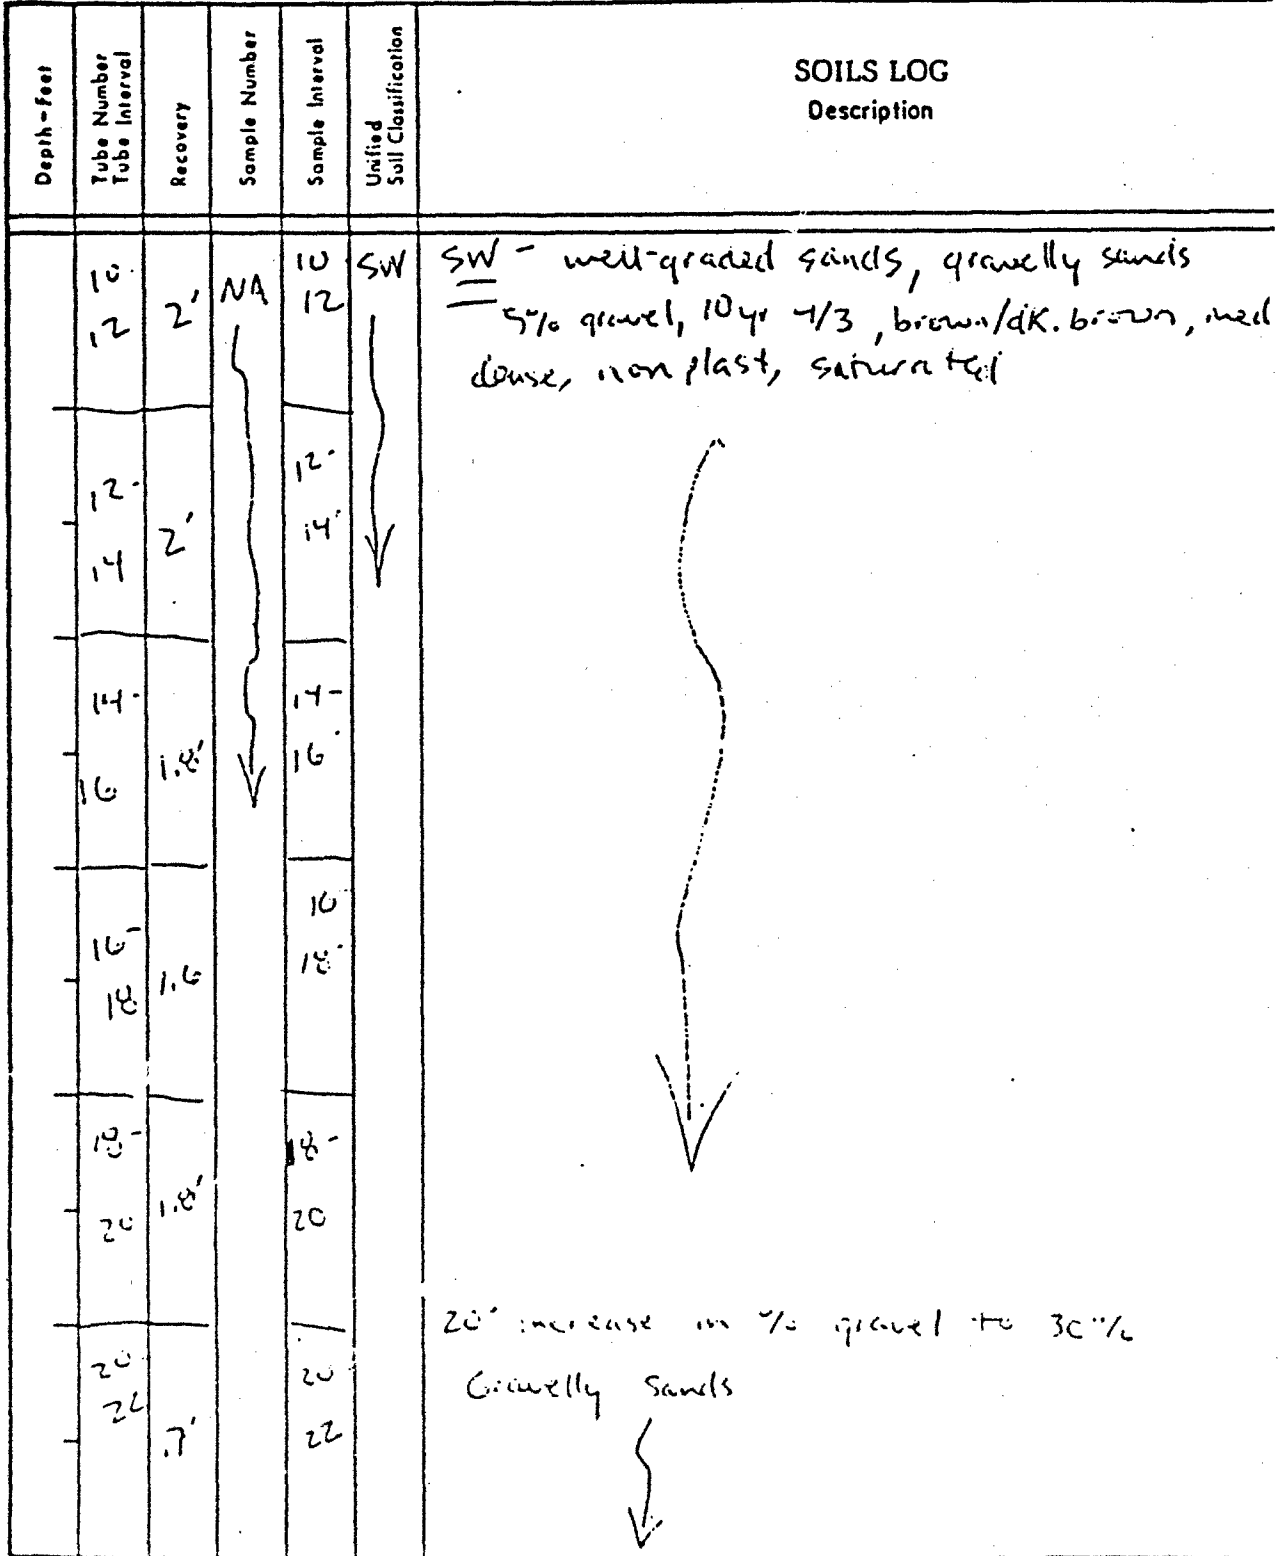 SOILS LOG
Description
Depth-Feet
Tube Number
Tube Interval
Recovery
Sample Number
Sample Interval
Unified
Soil Classification
10-
12
2'
NA
10
12
SW
SW - well-graded sands, gravelly sands
5% gravel, 10 yr 4/3, brown/dk. brown, med
dense, non plast, saturated
12-
14
2'
12-
14'
14-
16
1.8'
14-
16'
16-
18
1.6
16
18'
18-
20
1.8'
18-
20
20' increase in % gravel to 30%
Gravelly Sands
20
22
.7'
20
22